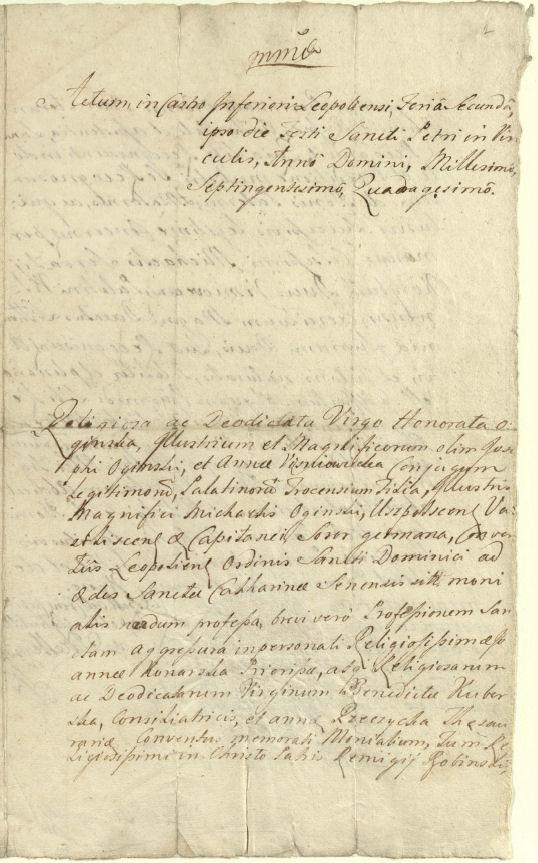 Actum in Castro Inferiori Leopoliensi, Feria Secunda,
ipso die Festi Sancti Petri in Vin
culis, Anno Domini, Millesimo,
Septingentesimo, Quadragesimo.
Religiosa ac Deodicata Virgo Honorata O-
ginska, Illustrium et Magnificorum olim Jose
phi Oginski, et Annæ Visniowicka Conjugum
Legitimorũ, Palatinorũ Trocensium Filia, Illustris
Magnifici Michaelis Oginski,
Capitanei, Soror germana, Conven
tûs Leopolien Ordinis Sancti Dominici ad
ædes Sanctæ Catharinæ Senensis sitt. moni
alis nondum professa, brevi vero Professionem San
ctam aggressura in personali Religiosissimæ Jo
annæ Konarska Priorissæ, atq Religiosarum
ac Deodicatarum Virginum Benedictæ Kuber
ska, Consiliatricis, et Annæ Przezycka Thesau
rariæ Conventus memorati Monialium, Tum Re
ligiosissimi in Christo Patris Remigij Robinski,